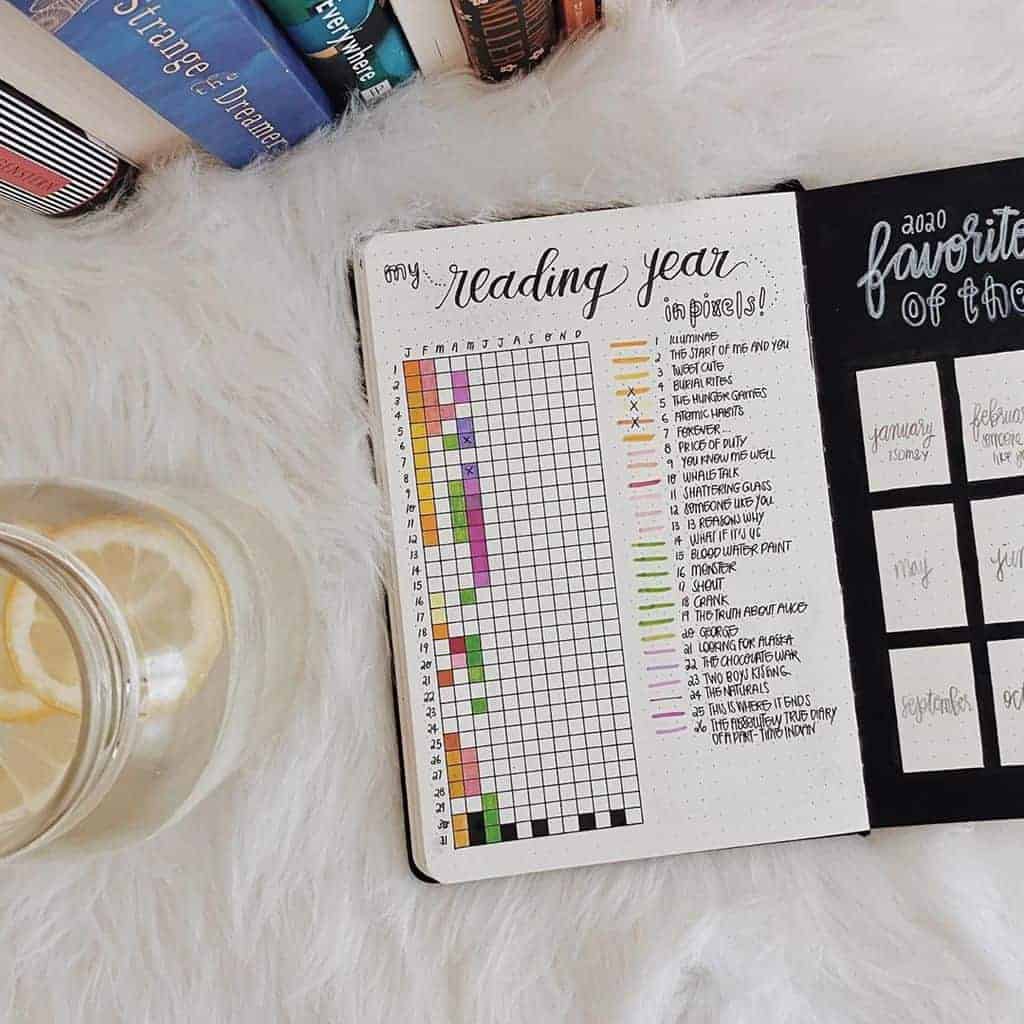 Strange the Dreamer
Everywhere
my reading year
in pixels!
J F M A M J J A S O N D
1
2
3
4
5
6
7
8
9
10
11
12
13
14
15
16
17
18
19
20
21
22
23
25
26
27
28
29
30
31
1 ILLUMINAE
2 THE START OF ME AND YOU
3 TWEET CUTE
4 BURIAL RITES
5 THE HUNGER GAMES
6 ATOMIC HABITS
7 FOREVER...
8 PRICE OF DUTY
9 YOU KNOW ME WELL
10 WHALE TALK
11 SHATTERING GLASS
12 SOMEONE LIKE YOU
13 13 REASONS WHY
14 WHAT IF IT'S US
15 BLOOD WATER PAINT
16 MONSTER
17 SHOUT
18 CRANK
19 THE TRUTH ABOUT ALICE
20 GEORGE
21 LOOKING FOR ALASKA
22 THE CHOCOLATE WAR
23 TWO BOYS KISSING
24 THE NATURALS
25 THIS IS WHERE IT ENDS
26 THE ABSOLUTELY TRUE DIARY
OF A PART-TIME INDIAN
2020
favorite
of the
january
may
september